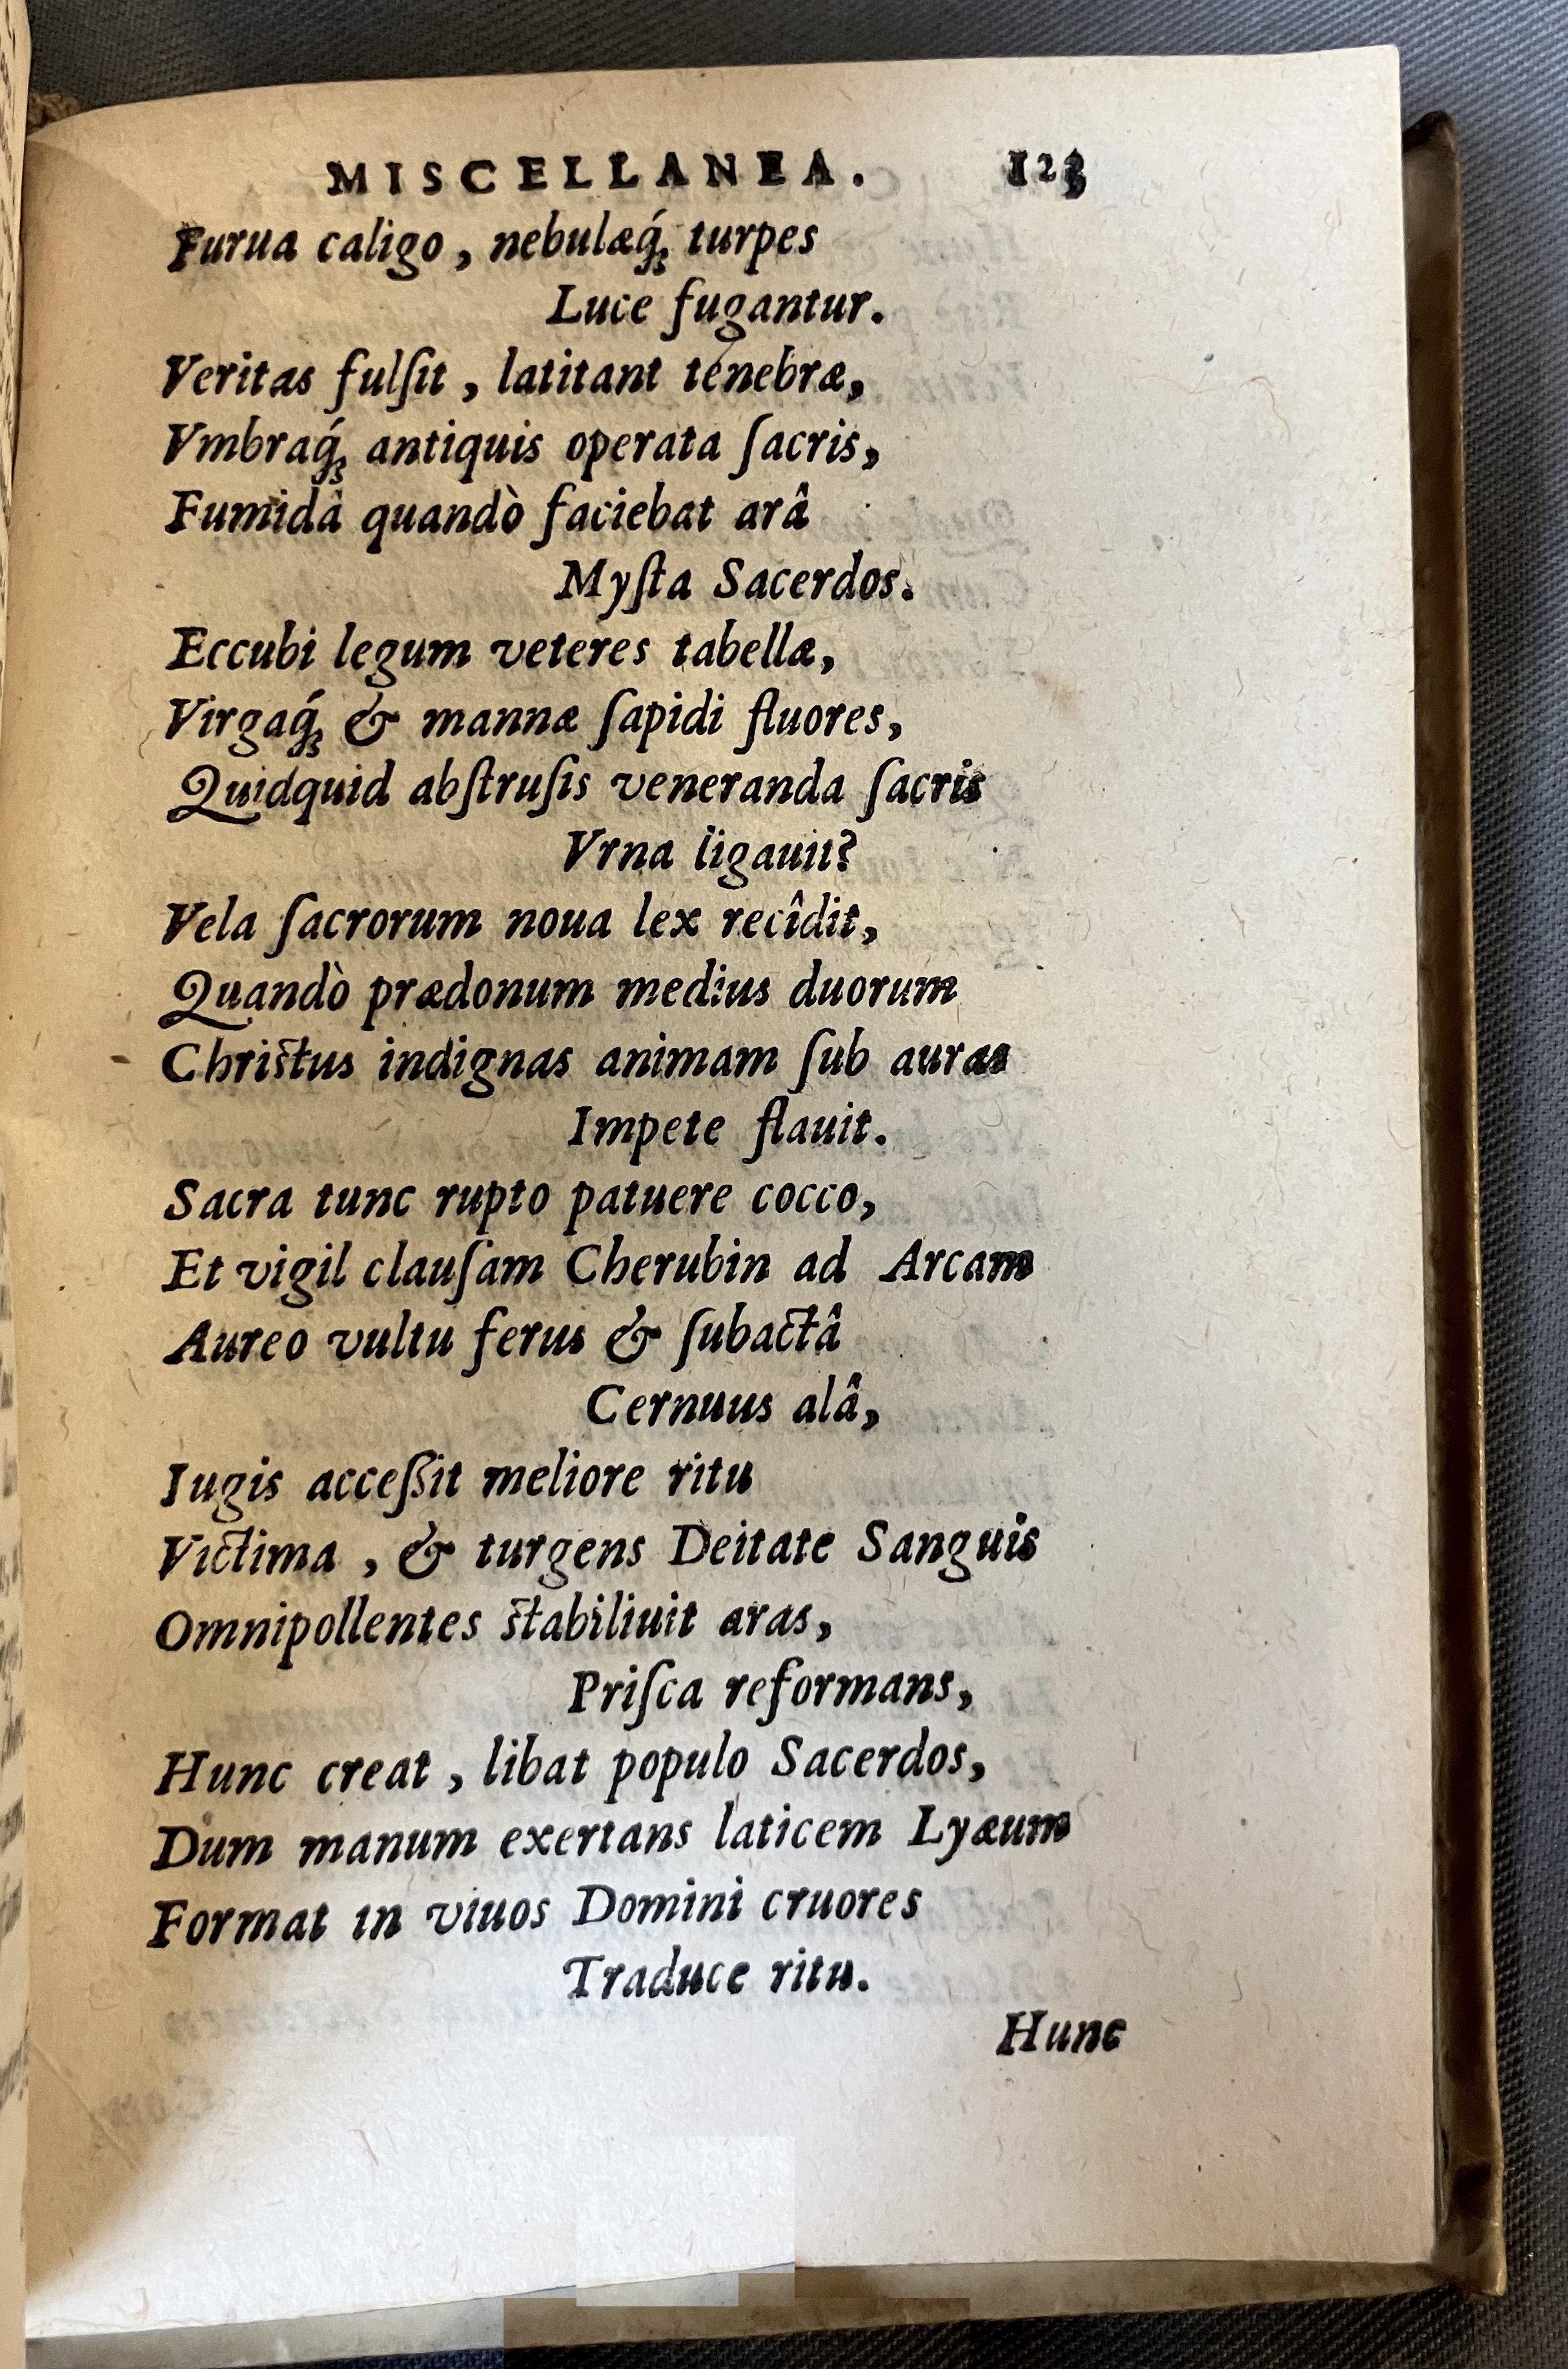 MISCELLANEA. 123
Furua caligo, nebulæq́; turpes
Luce fugantur.
Veritas fulſit, latitant tenebræ,
Vmbraq́; antiquis operata ſacris,
Fumidâ quandò faciebat arâ
Myſta Sacerdos.
Eccubi legum veteres tabellæ,
Virgaq́; & mannæ ſapidi fluores,
Quidquid abſtruſis veneranda ſacris
Vrna ligauit?
Vela ſacrorum noua lex recîdit,
Quandò prædonum medius duorum
Chriſtus indignas animam ſub auras
Impete flauit.
Sacra tunc rupto patuere cocco,
Et vigil clauſam Cherubin ad Arcam
Aureo vultu ferus & ſubactâ
Cernuus alâ,
Iugis acceſſit meliore ritu
Victima, & turgens Deitate Sanguis
Omnipollentes ſtabiliuit aras,
Priſca reformans,
Hunc creat, libat populo Sacerdos,
Dum manum exertans laticem Lyæum
Format in viuos Domini cruores
Traduce ritu.
Hunc